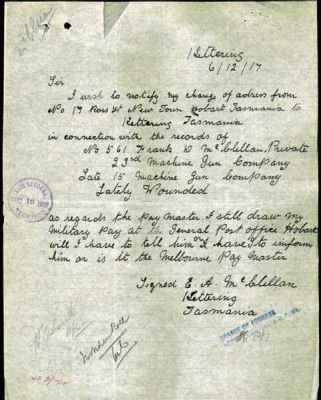 Kettering
6/12/17
Sir
I wish to notify my change of adress from
No 17 Ross St New Town Hobart Tasmania to
Kettering Tasmania
in connection with the records of
No 561 Frank D McClellan, Private
23rd Machine Gun Company
Late 15 Machine Gun Company
Lately Wounded
as regards the Pay Master I still draw my
Military Pay at the General Post office Hobart
will I have to tell him or have I to inform
him or is it the Melbourne Pay Master
Signed E. A. McClellan
Kettering
Tasmania
CHANGE OF ADDRESS